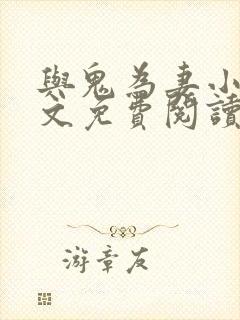 與鬼為妻小
文免費閱讀
游章友